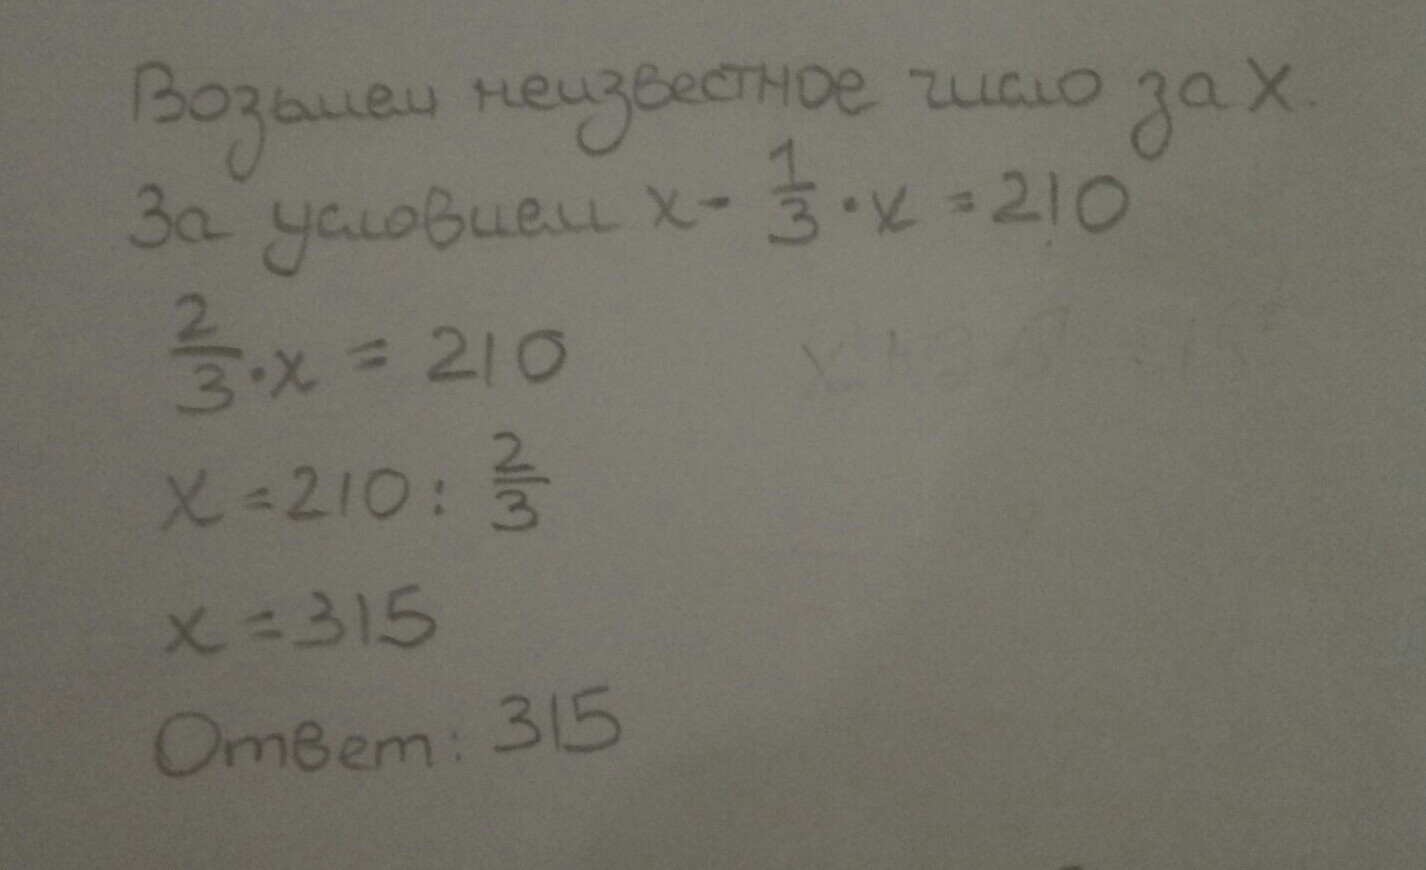 Возьмем неизвестное число за X.
За условием x - 1/3 · x = 210
2/3 · x = 210
x = 210 : 2/3
x = 315
Ответ: 315